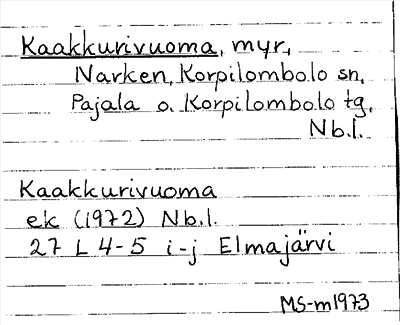 Kaakkurivuoma, myr,
Narken, Korpilombolo sn,
Pajala o. Korpilombolo tg,
Nb.l.
Kaakkurivuoma
ek (1972) Nb.l.
27 L 4-5 i-j Elmajärvi
MS-m1973